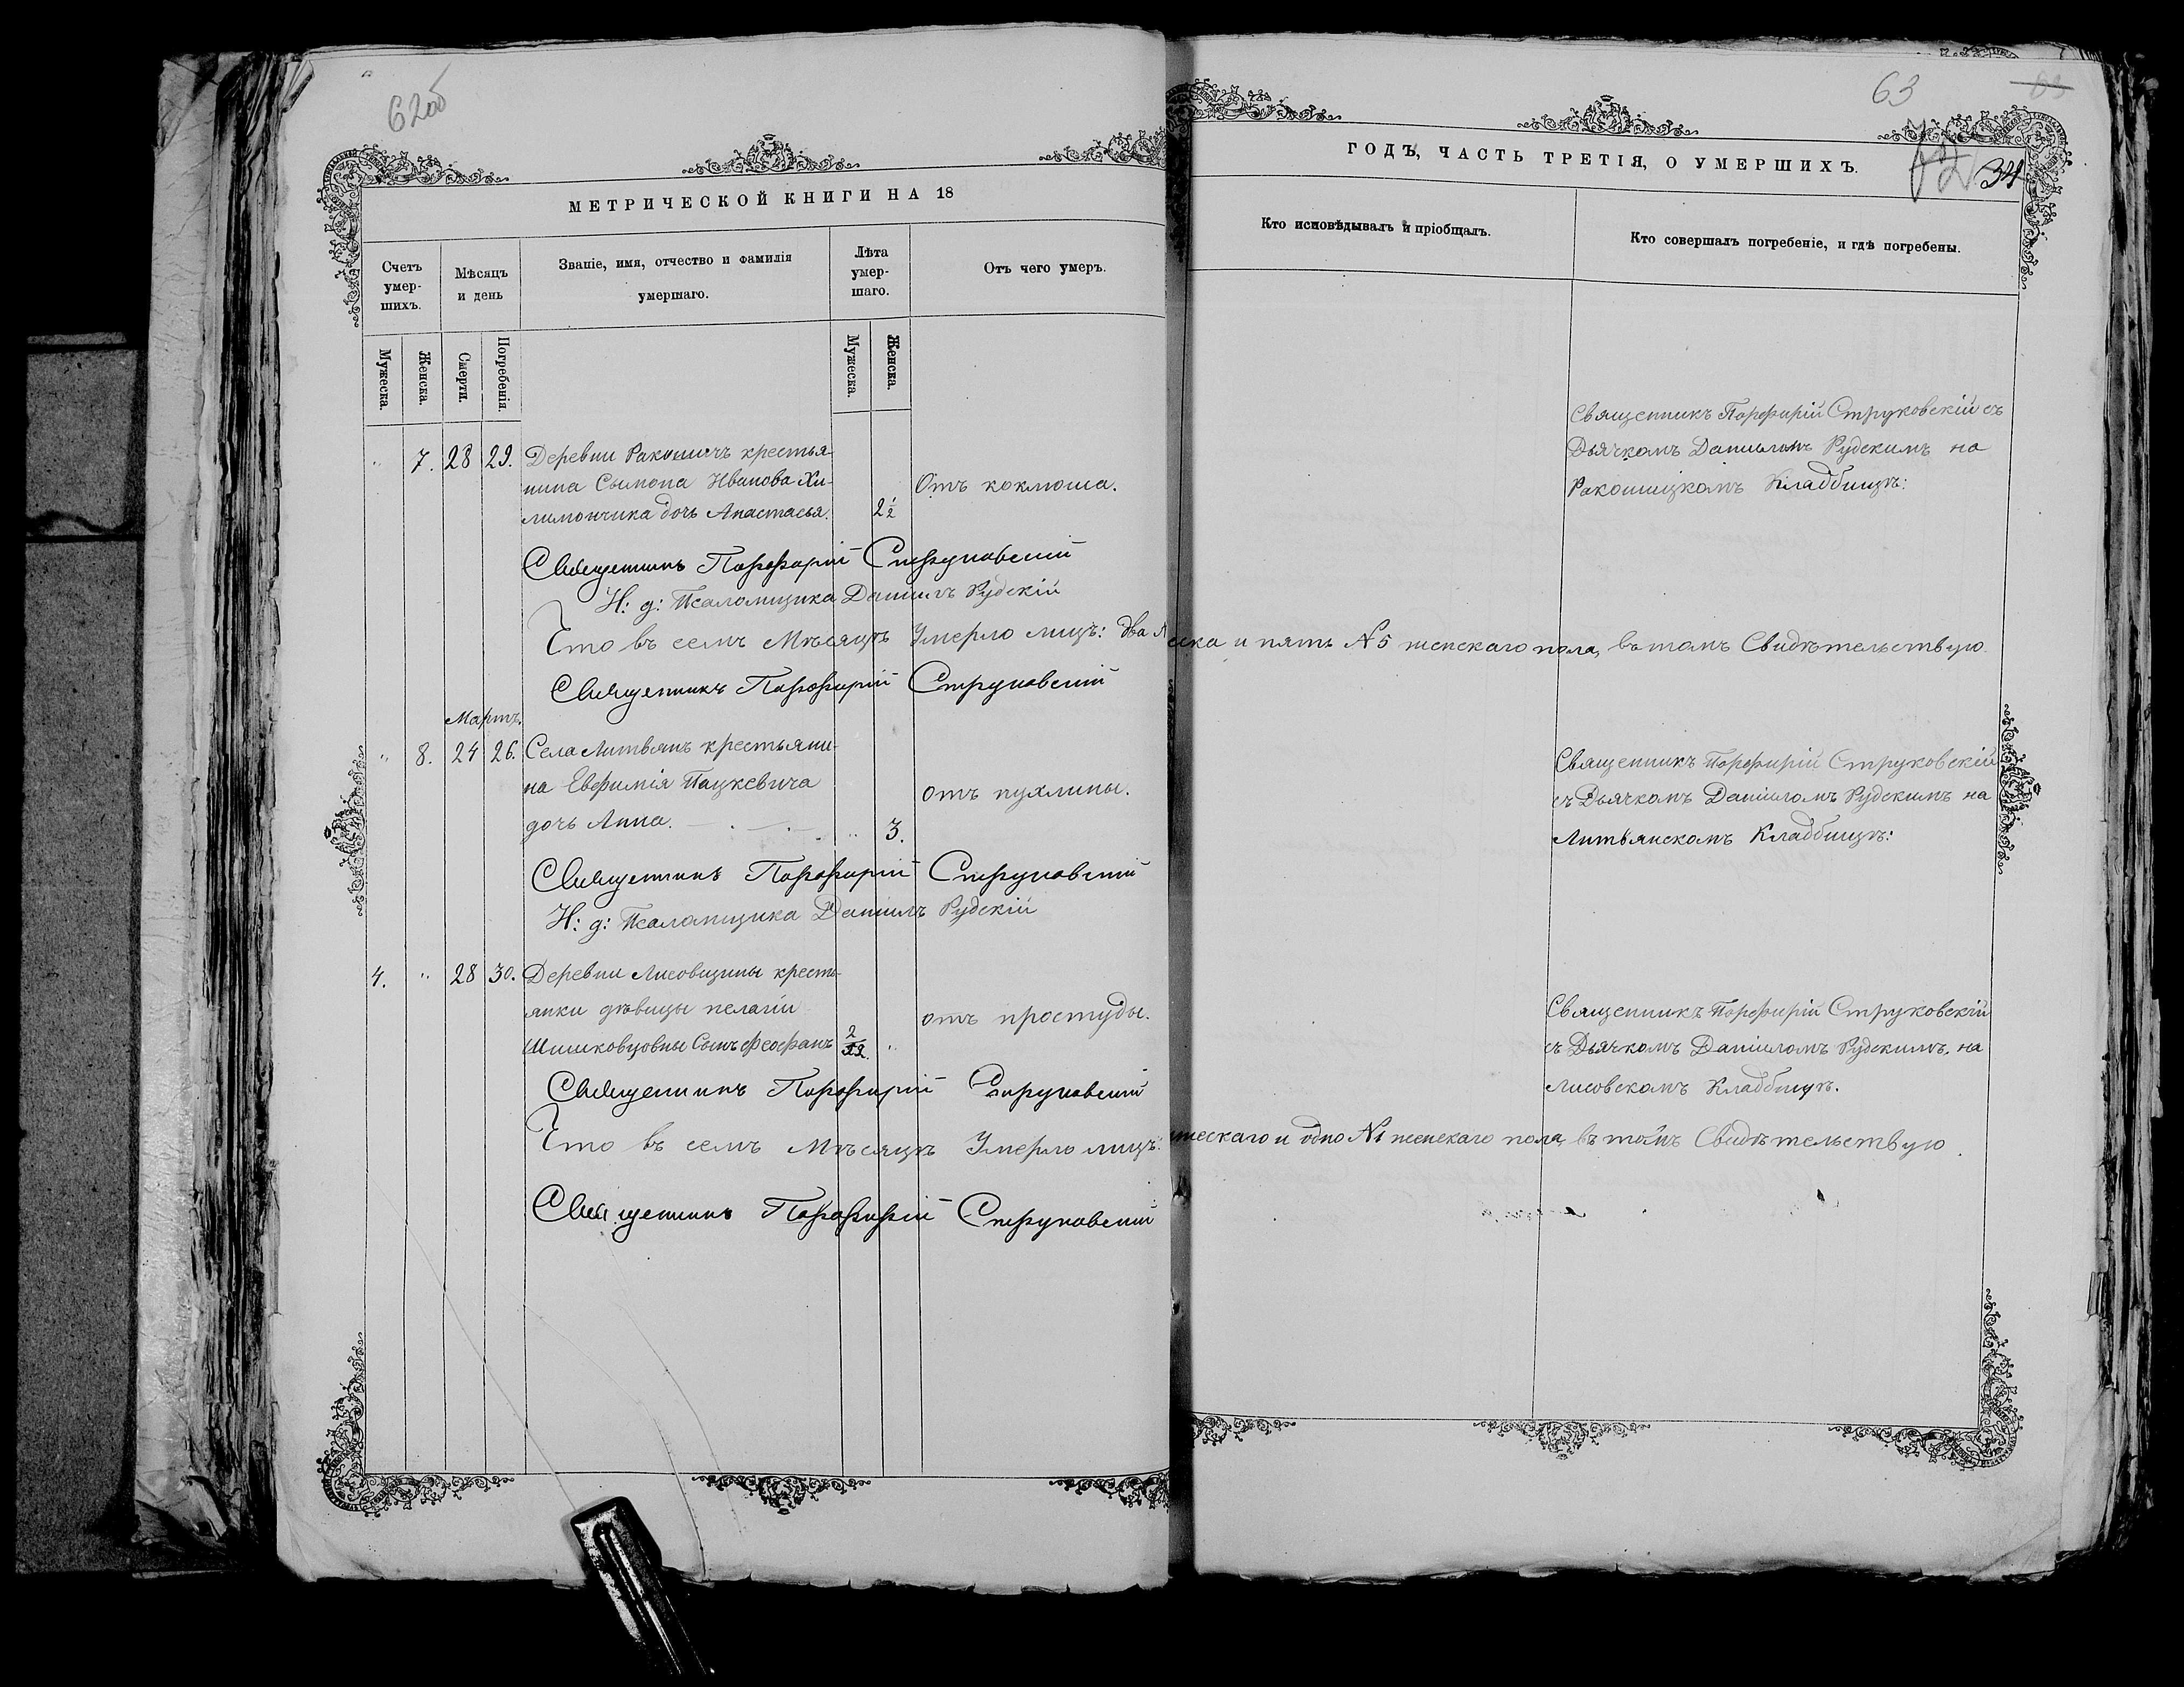 62об
МЕТРИЧЕСКОЙ КНИГИ НА 18
Счетъ умер-шихъ.
Мѣсяцъ и день
Званіе, имя, отчество и фамилія умершаго.
Лѣта умер-шаго.
Отъ чего умеръ.
Мужеска.
Женска.
Смерти.
Погребенія.
Мужеска.
Женска.
" 7. 28 29. Деревни Ракошичъ крестья-
нина Сымона Иванова Хи-
лимончика дочь Анастасья. 2½ Отъ коклюша.
Священникъ Порфирій Струковскій
И: д: Псаломщика Даніилъ Рудскій
Что въ семъ Мѣсяцѣ Умерло лицъ: два
Священникъ Порфирій Струковскій
Мартъ.
" 8. 24 26. Села Литвянъ крестьяни-
на Евфимія Пацкевича
дочь Анна. " 3. отъ пухлины.
Священникъ Порфирій Струковскій
И: д: Псаломщика Даніилъ Рудскій
4. " 28 30. Деревни Лисовщины кресть-
янки дѣвицы пелагіи
Шишковцовны Сынъ Феофанъ " отъ простуды.
Священникъ Порфирій Струковскій
Что въ семъ Мѣсяцѣ Умерло лицъ:
Священникъ Порфирій Струковскій
63
63
34
ГОДЪ, ЧАСТЬ ТРЕТІЯ, О УМЕРШИХЪ.
Кто исповѣдывалъ и пріобщалъ.
Кто совершалъ погребеніе, и гдѣ погребены.
Священникъ Порфирій Струковскій съ
Дьячкомъ Даніиломъ Рудскимъ на
Ракошицкомъ Кладбищѣ:
ска и пять №5 женскаго пола, въ томъ Свидѣтельствую
Священникъ Порфирій Струковскій
съ Дьячкомъ Даніиломъ Рудскимъ на
Литвянскомъ Кладбищѣ:
Священникъ Порфирій Струковскій
съ Дьячкомъ Даніиломъ Рудскимъ, на
Лисовскомъ Кладбищѣ.
жескаго и одно №1 женскаго пола, въ томъ Свидѣтельствую